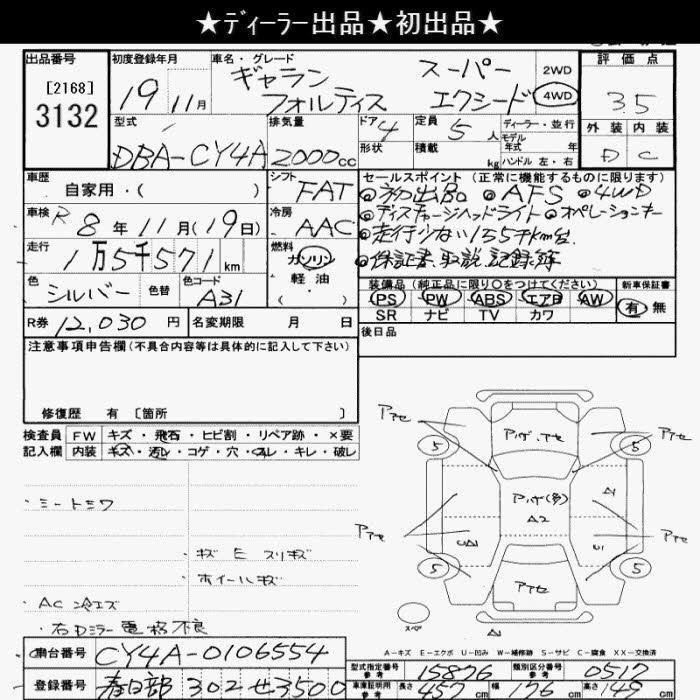 ★ディーラー出品★初出品★
出品番号
[2168]
3132
初度登録年月
19 11月
車名・グレード
ギャラン スーパー
フォルティス エクシード
2WD
4WD
評価点
3.5
外装 内装
D C
型式
DBA-CY4A
排気量
2000cc
ドア 4
形状
定員 5人
積載 kg
ディーラー・並行
モデル
年式 年
ハンドル 左・右
車歴
自家用・( )
シフト
FAT
車検 R 8年11月(19日)
冷房
AAC
走行
1万5千571km
燃料
ガソリン
軽油
・
色
シルバー
色替
色コード
A31
R券 12,030円
名変期限 月 日
セールスポイント (正常に機能するものに限ります)
◎初出品 ◎AFS ◎4WD
◎ディスチャージヘッドライト ◎オペレーションキー
◎走行少ない15.5千km台
◎保証書、取説、記録簿
装備品 (純正品に限り○をつけてください)
PS PW ABS エアB AW
SR ナビ TV カワ
新車保証書
有・無
後日品
注意事項申告欄(不具合内容等は具体的に記入して下さい)
修復歴 有 [箇所 ]
検査員
記入欄
FW キズ・飛石・ヒビ割・リペア跡・×要
内装 キズ・汚レ・コゲ・穴・スレ・キレ・破レ
・シートシワ
・キズ E スリキズ
・ホイールキズ
・AC 冷エズ
・右Dミラー電格不良
アアセ
アアセ
アハゲ.アセ
5
5
アハゲ(多)
A2
A1
アアセ
アアセ
5
5
アアセ
スペア
A1
A-キズ E-エクボ U-凹み W-補修跡 S-サビ C-腐食 XX-交換済
車台番号 CY4A-0106554
登録番号 春日部 302 せ 3500
型式指定番号
参考
15876
類別区分番号
参考
0517
車庫証明用
参考
長さ 457cm
幅 176cm
高さ 149cm